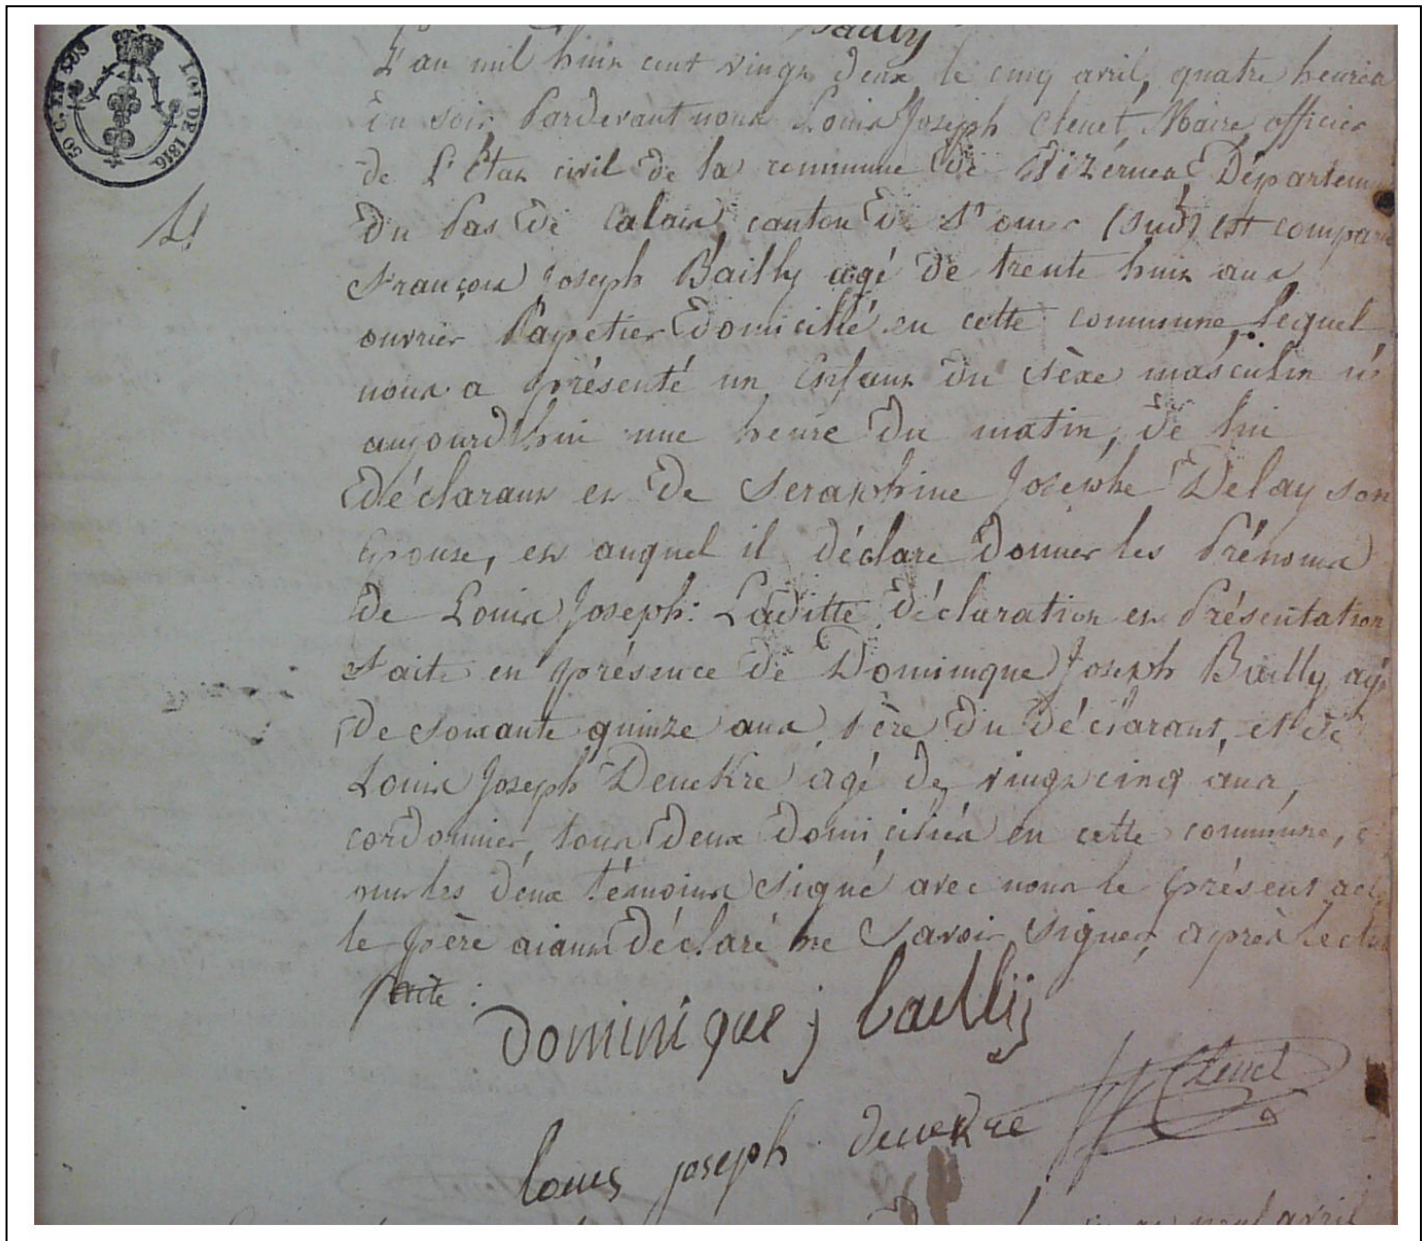 Bailly
50 C. EN SUS
LOI DE 1816.
L'an mil huit cent vingt deux le cinq avril, quatre heures
du soir, Pardevant nous Louis Joseph Clenet, Maire officier
de L'Etat civil de la commune de Wizernes Départem
du Pas de Calais canton de St omer (sud) est comparu
François Joseph Bailly agé de trente huit ans
ouvrier Papetier Domicilié en cette commune, Lequel
nous a présenté un Enfant du sèxe masculin né
aujourd'hui une heure du matin, de lui
Déclarant et de Seraphine Josephe Delay son
Epouse, et auquel il déclare Donner les Prénoms
de Louis Joseph: Laditte déclaration et Présentation
Faite en présence de Dominique Joseph Bailly agé
De soixante quinze ans, Père du Déclarant, et de
Louis Joseph Devekre agé de vingt cinq ans,
cordonnier, tous Deux Domiciliés en cette commune,
les deux témoins signé avec nous le présent acte
le père aiant Déclaré ne Savoir Signer, après lecture
faite :
dominique j bailly
Clenet
louis joseph devekre
avril